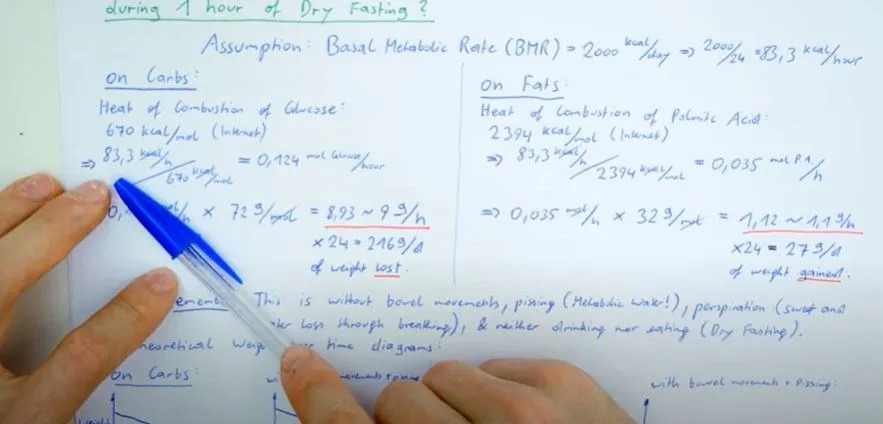 during 1 hour of Dry Fasting?
Assumption: Basal Metabolic Rate (BMR) = 2000 kcal/day => 2000/24 = 83,3 kcal/hour
on Carbs:
Heat of Combustion of Glucose:
670 kcal/mol (Internet)
=> 83,3 kcal/h / 670 kcal/mol = 0,124 mol Glucose/hour
0,1 mol/h × 72 g/mol = 8,93 ~ 9 g/h
×24 = 216 g/d
of weight lost.
on Fats:
Heat of Combustion of Palmitic Acid:
2394 kcal/mol (Internet)
=> 83,3 kcal/h / 2394 kcal/mol = 0,035 mol PA/h
=> 0,035 mol/h × 32 g/mol = 1,12 ~ 1,1 g/h
×24 = 27 g/d
of weight gained.
This is without bowel movements, pissing (Metabolic Water!), perspiration (sweat and
loss through breathing), & neither drinking nor eating (Dry Fasting).
time diagrams:
on Carbs:
with bowel movements + pissing: